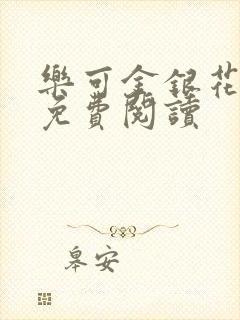 樂可金銀花
免費閱讀
皋安